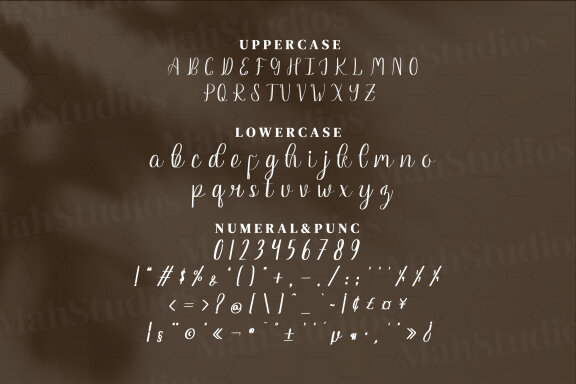 MahStudios
UPPERCASE
A B C D E F G H I I K L M N O
P Q R S T U V V W X Y Z
LOWERCASE
a b c d e f g h i j k l m n o
p q r s t u v v w x y z
NUMERAL&PUNC
0 1 2 3 4 5 6 7 8 9
! " # $ % & ' ( ) * + , - . / : ; ' ' '
< = > ? @ [ \ ] ^ _ ` ~ | ¢ £ ¤ ¥
¦ § ¨ © ° « ¬ ± µ » ¿
MahStudios